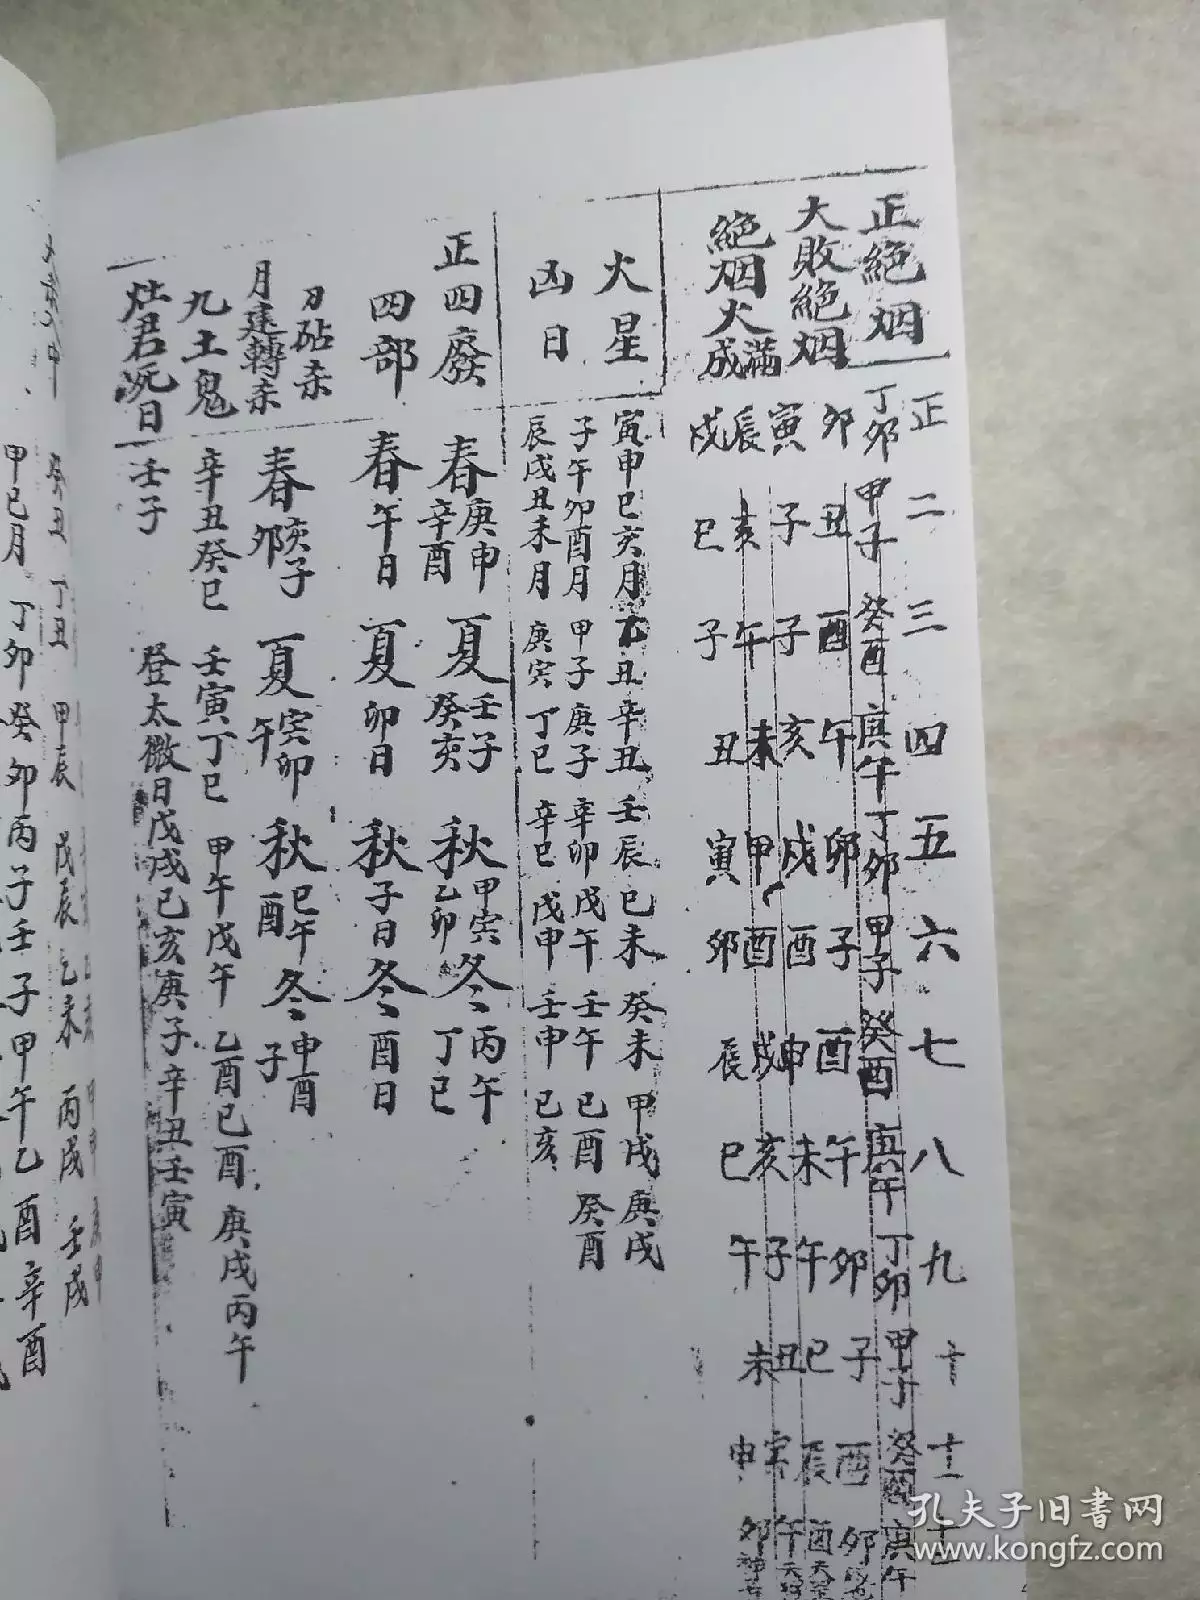 正 二 三 四 五 六 七 八 九 十 十一 十二
正絕烟 丁卯 甲子 癸酉 庚午 丁卯 甲子 癸酉 庚午 丁卯 甲子 癸酉 庚午
大敗絕烟 卯 丑 酉 午 卯 子 酉 午 卯 子 酉 卯
寅 子 子 亥 戌 酉 申 未 午 巳 辰 酉
絕烟火滿 辰 亥 午 未 甲 酉 戌 亥 子 丑 寅 午
成 戌 巳 子 丑 寅 卯 辰 巳 午 未 申 卯
火星 寅申巳亥月 乙丑 辛丑 壬辰 己未 癸未 甲戌 庚戌
子午卯酉月 甲子 庚子 辛卯 戊午 壬午 己酉 癸酉
凶日 辰戌丑未月 庚寅 丁巳 辛巳 戊申 壬申 己亥
正四廢 春 庚申 辛酉 夏 壬子 癸亥 秋 甲寅 乙卯 冬 丙午 丁巳
四部 春午日 夏卯日 秋子日 冬酉日
刀砧杀 春 亥子 夏 寅卯 秋 巳午 冬 申酉
月建轉杀 卯 午 酉 子
九土鬼 辛丑 癸巳 壬寅 丁巳 甲午 戊午 乙酉 己酉 庚戌 丙午
灶君死日 壬子 登太微日 戊戌 己亥 庚子 辛丑 壬寅
癸丑 丁丑 甲辰 戊辰 乙未 丙戌 壬戌
甲己月 丁卯 癸卯 丙子 壬子 甲午 乙酉 辛酉
孔夫子旧书网
www.kongfz.com